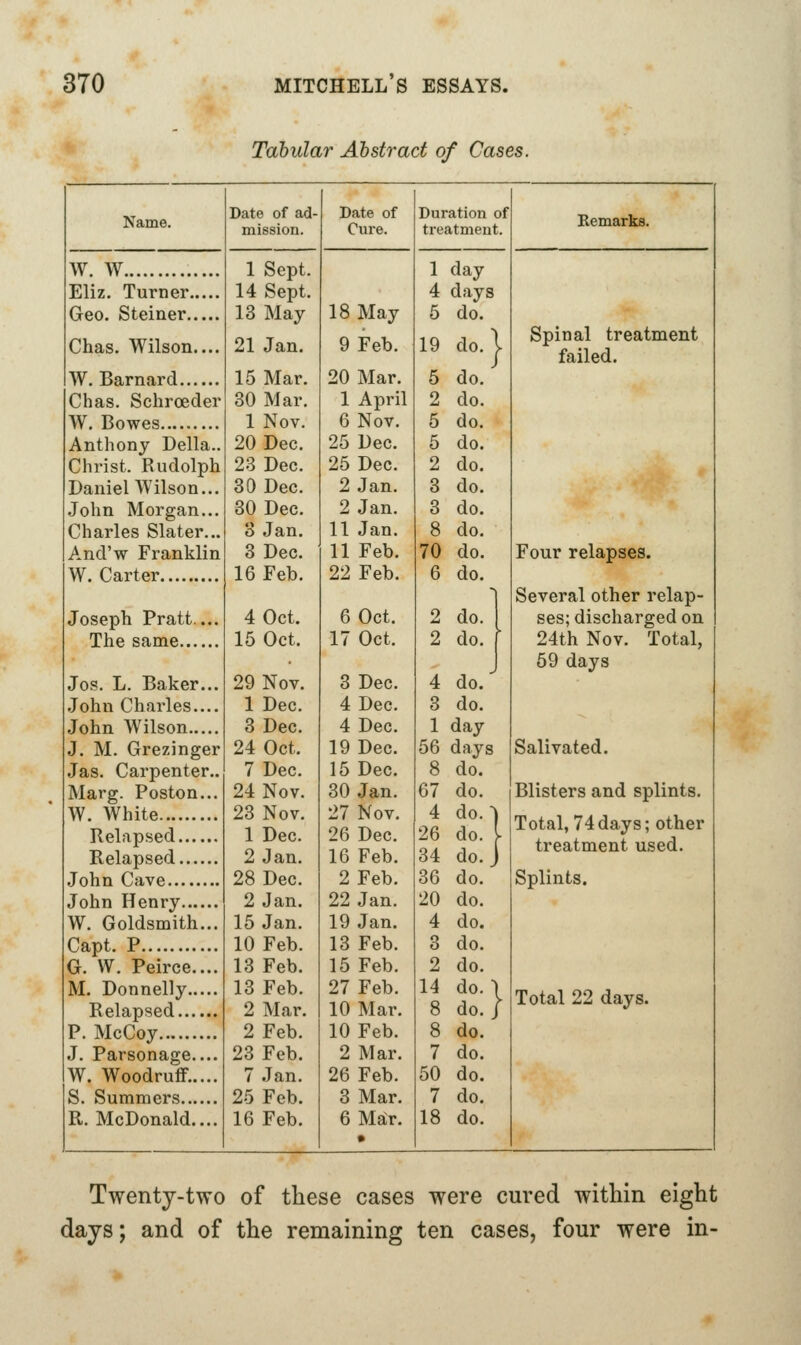 370 MITCHELL'S ESSAYS.
Tabular Abstract of Cases.
Name. Date of ad- Date of Duration of Remarks.
mission. Cure. treatment.
W. W............ 1 Sept. 1 day
Eliz. Turner..... 14 Sept. 4 days
Geo. Steiner..... 13 May 18 May 5 do.
Chas. Wilson.... 21 Jan. 9 Feb. 19 do. } Spinal treatment
failed.
W. Barnard...... 15 Mar. 20 Mar. 5 do.
Chas. Schrœder 30 Mar. 1 April 2 do.
W. Bowes......... 1 Nov. 6 Nov. 5 do.
Anthony Della.. 20 Dec. 25 Dec. 5 do.
Christ. Rudolph 23 Dec. 25 Dec. 2 do.
Daniel Wilson... 30 Dec. 2 Jan. 3 do.
John Morgan... 30 Dec. 2 Jan. 3 do.
Charles Slater... 3 Jan. 11 Jan. 8 do.
And'w Franklin 3 Dec. 11 Feb. 70 do. Four relapses.
W. Carter......... 16 Feb. 22 Feb. 6 do.
Several other relap-
Joseph Pratt.... 4 Oct. 6 Oct. 2 do. ses; discharged on
The same...... 15 Oct. 17 Oct. 2 do. } 24th Nov. Total,
59 days
Jos. L. Baker... 29 Nov. 3 Dec. 4 do.
John Charles.... 1 Dec. 4 Dec. 3 do.
John Wilson..... 3 Dec. 4 Dec. 1 day
J. M. Grezinger 24 Oct. 19 Dec. 56 days Salivated.
Jas. Carpenter.. 7 Dec. 15 Dec. 8 do.
Marg. Poston... 24 Nov. 30 Jan. 67 do. Blisters and splints.
W. White......... 23 Nov. 27 Nov. 4 do.
Relapsed...... 1 Dec. 26 Dec. 26 do. } Total, 74 days; other
Relapsed...... 2 Jan. 16 Feb. 34 do. treatment used.
John Cave........ 28 Dec. 2 Feb. 36 do. Splints.
John Henry...... 2 Jan. 22 Jan. 20 do.
W. Goldsmith... 15 Jan. 19 Jan. 4 do.
Capt. P............ 10 Feb. 13 Feb. 3 do.
G. W. Peirce.... 13 Feb. 15 Feb. 2 do.
M. Donnelly..... 13 Feb. 27 Feb. 14 do. } Total 22 days.
Relapsed...... 2 Mar. 10 Mar. 8 do.
P. McCoy......... 2 Feb. 10 Feb. 8 do.
J. Parsonage.... 23 Feb. 2 Mar. 7 do.
W. Woodruff..... 7 Jan. 26 Feb. 50 do.
S. Summers...... 25 Feb. 3 Mar. 7 do.
R. McDonald.... 16 Feb. 6 Mar. 18 do.
Twenty-two of these cases were cured within eight
days; and of the remaining ten cases, four were in-